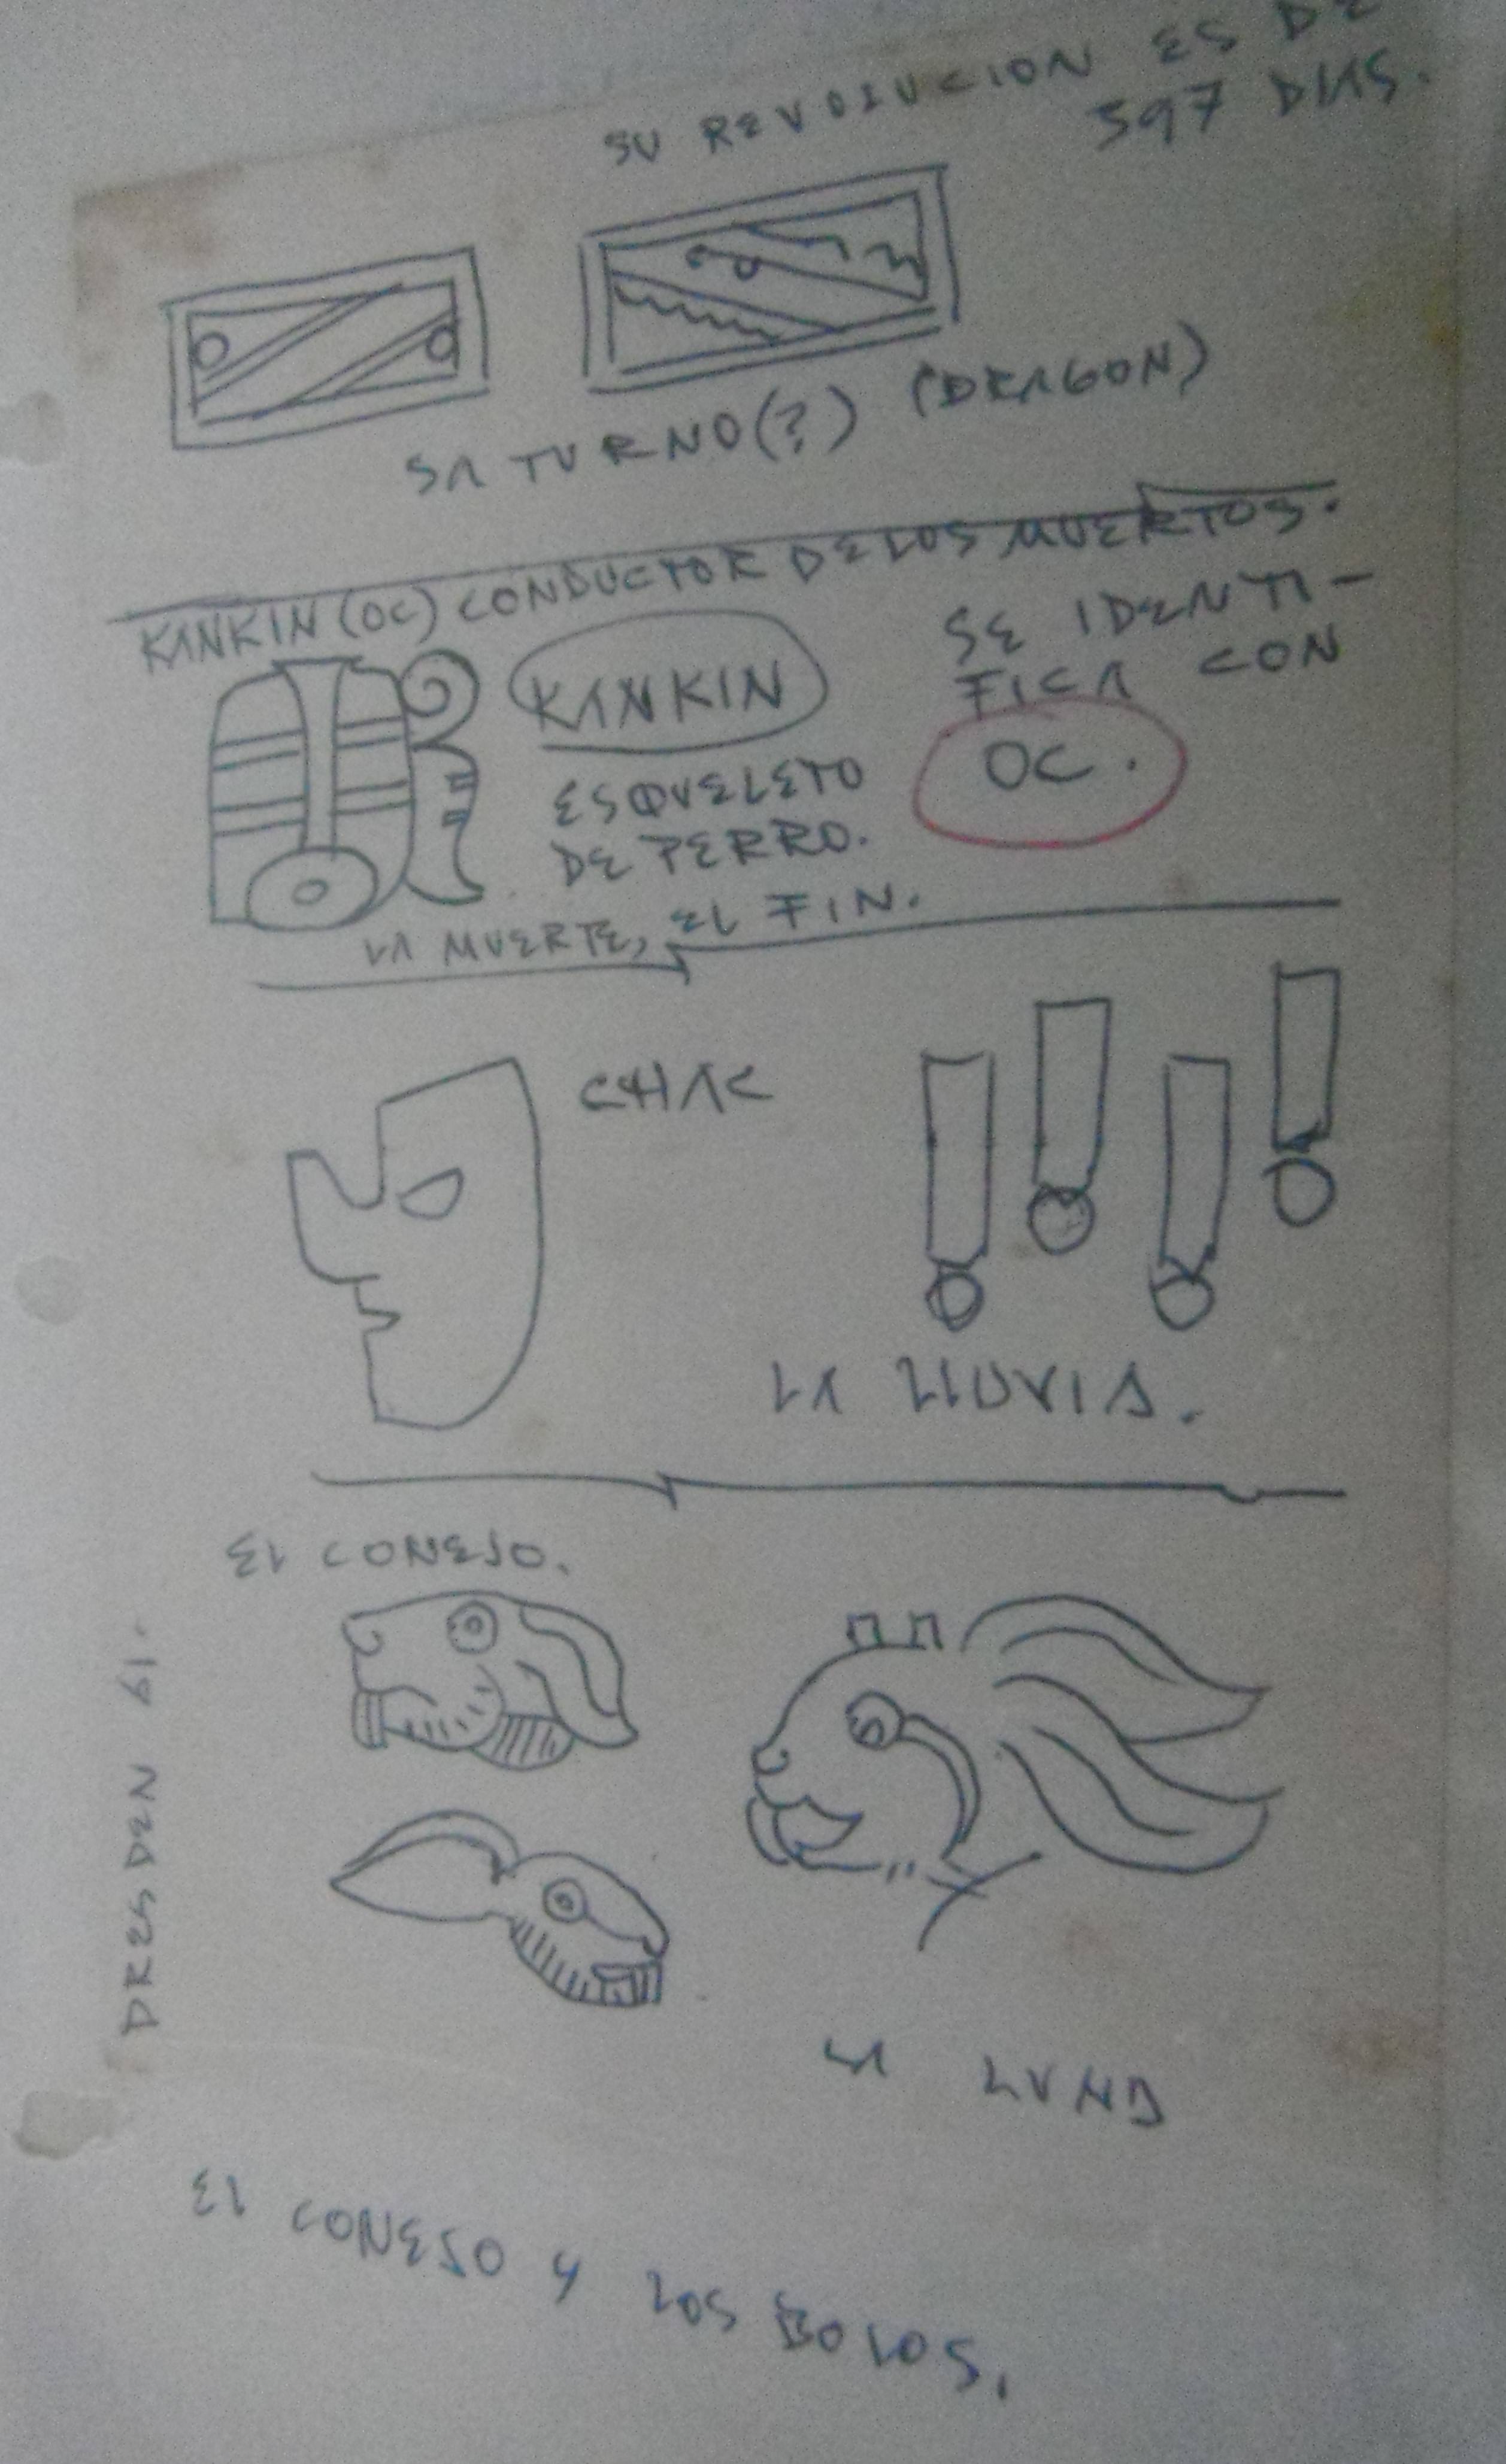 SU REVOLUCION ES DE
397 DIAS.
SATURNO(?) (DRAGON)
KANKIN (OC) CONDUCTOR DE LOS MUERTOS.
KANKIN
ESQUELETO
DE PERRO.
LA MUERTE, EL FIN.
SE IDENTI-
FICA CON
OC.
CHAC
LA LLUVIA.
EL CONEJO.
DRESDEN 61.
LA LUNA
EL CONEJO Y LOS